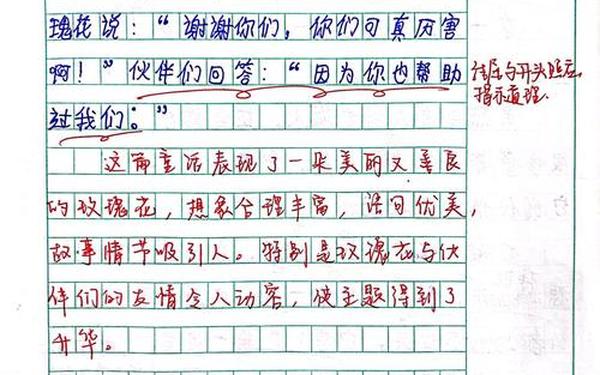 瑰花说：“谢谢你们，你们可真厉害
啊！”伙伴们回答：“因为你也帮助
过我们。”
结尾与开头照应，
揭示道理.
这篇童话表现了一朵美丽又善良
的玫瑰花，想象合理丰富，语句优美，
故事情节吸引人。特别是玫瑰花与伙
伴们的友情令人动容，使主题得到了
升华。